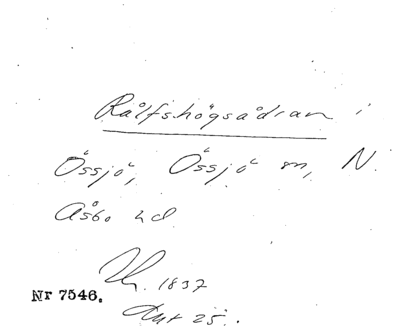 Rålfshögsådran i
Össjö, Össjö sn, N.
Åsbo hd
1837
Nr 7546.
Akt 25.